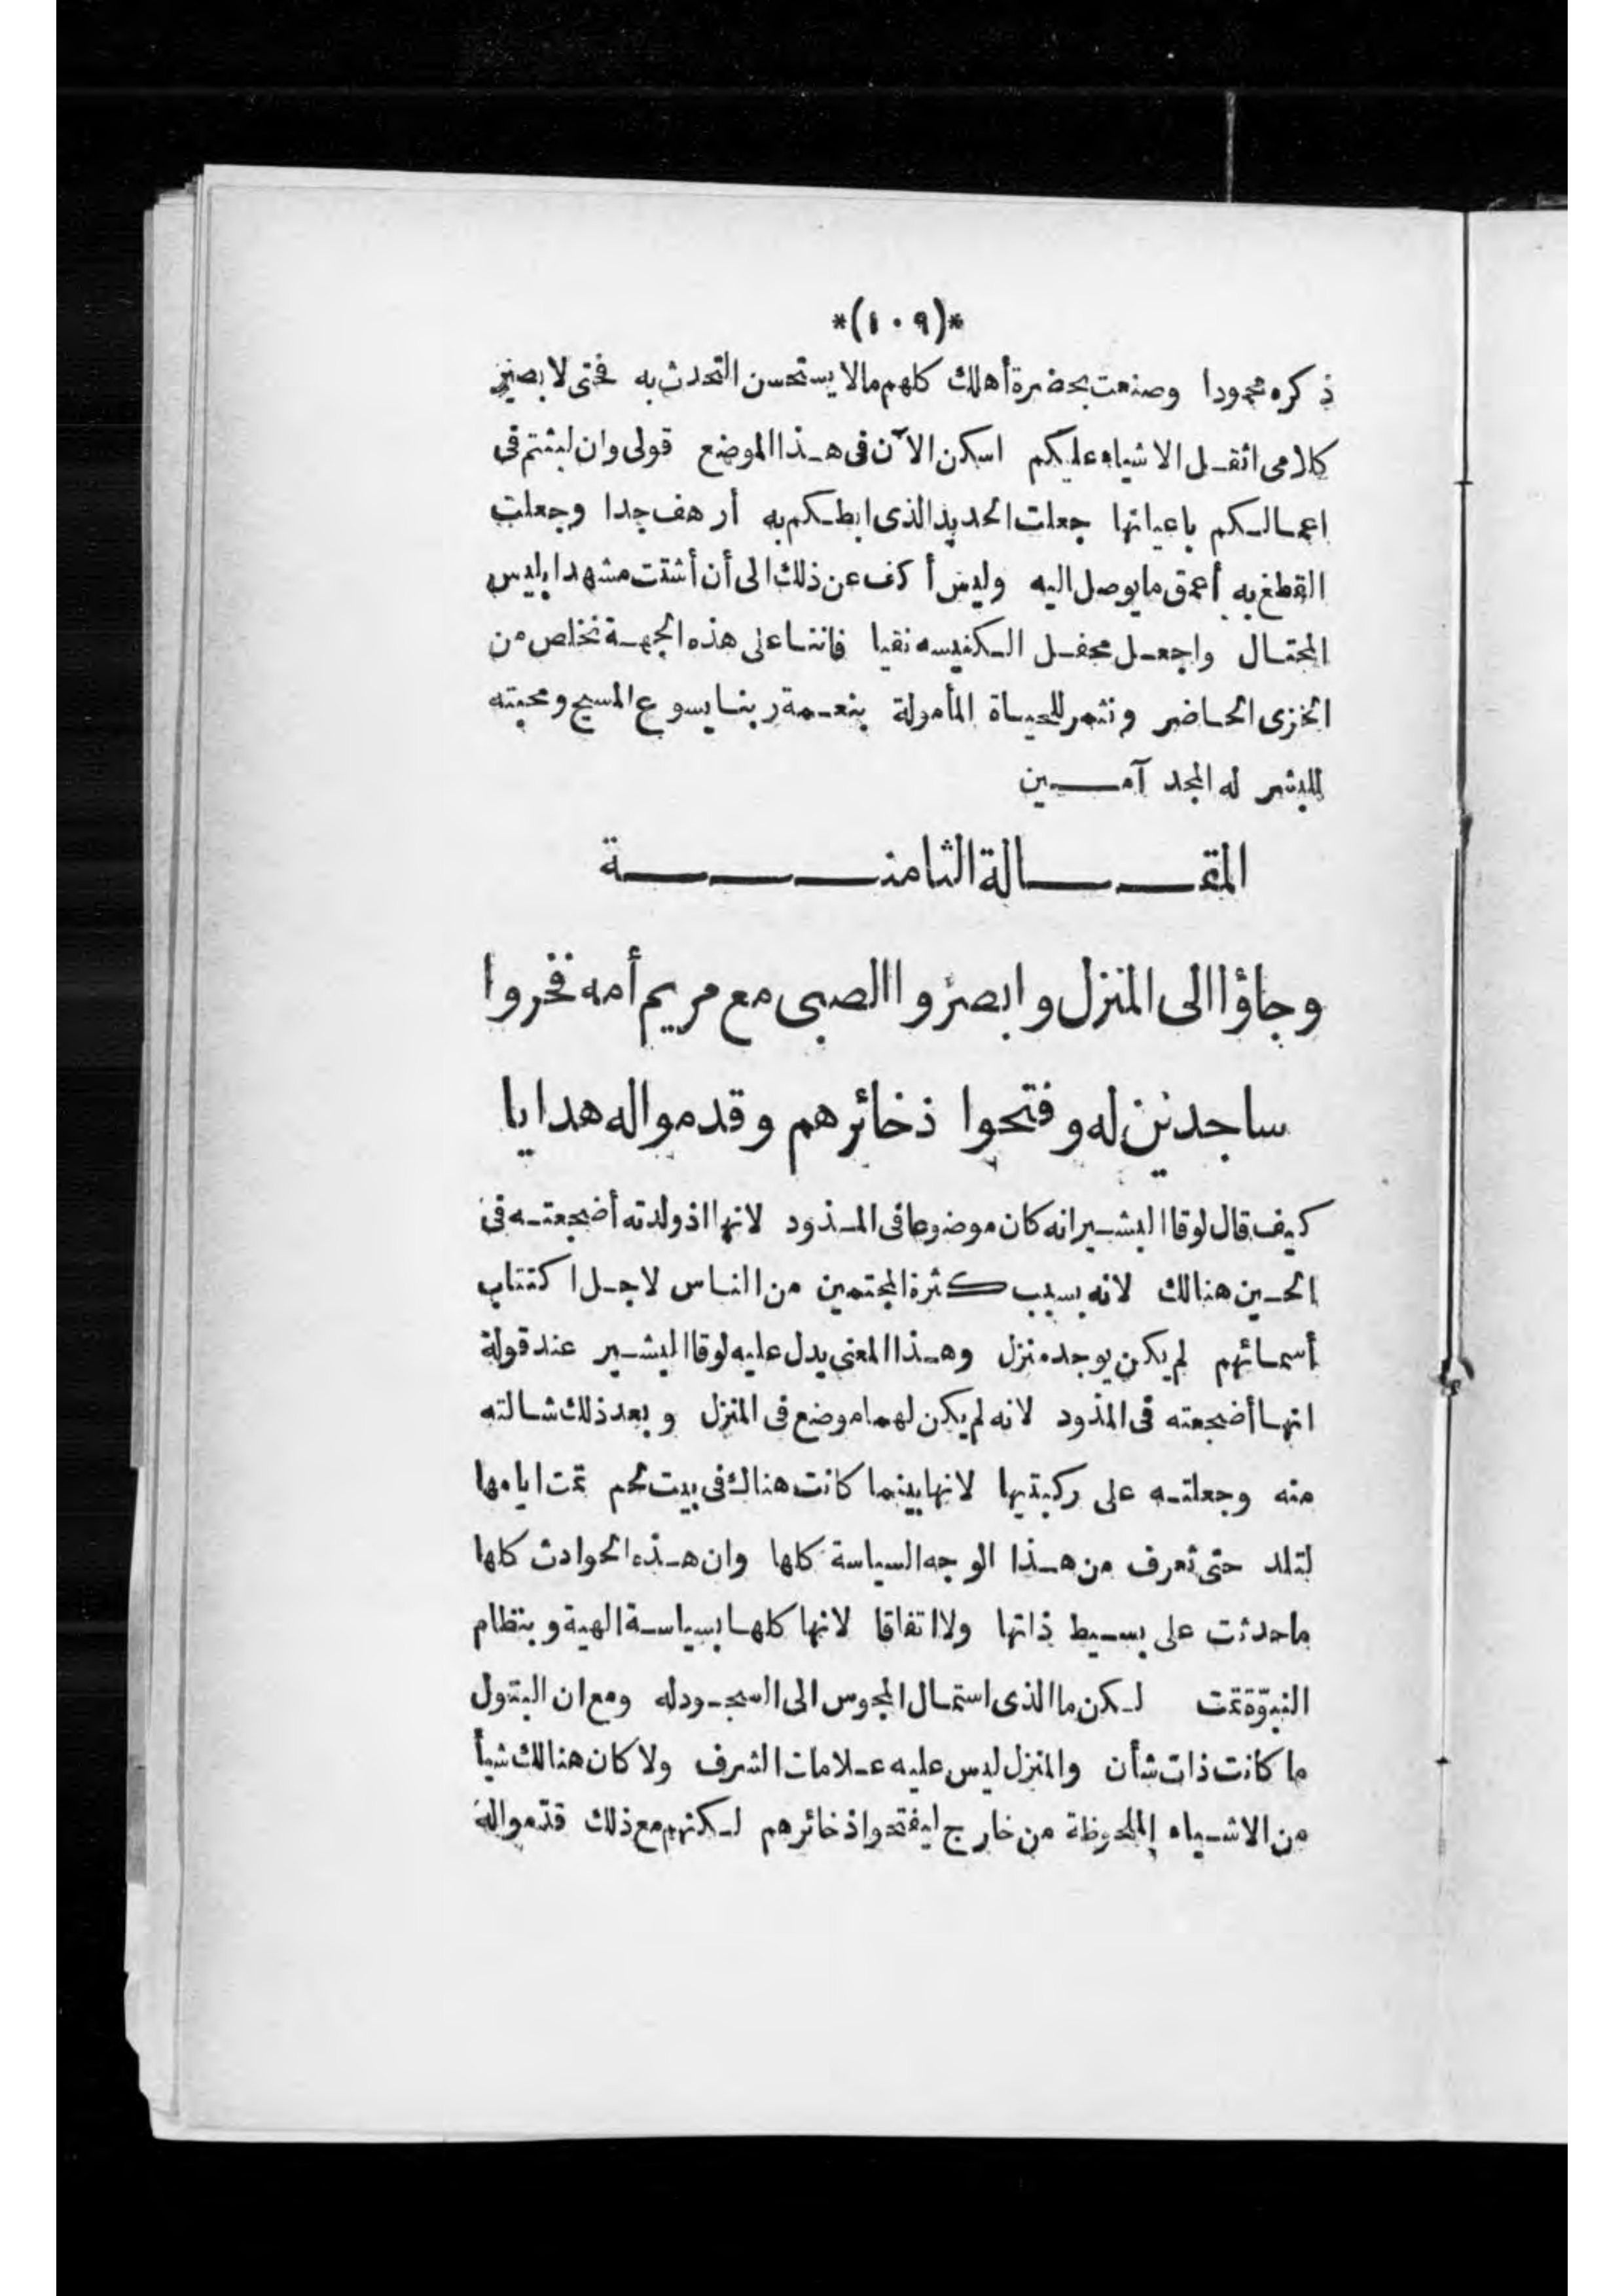 *(١٠٩)*
ذكره محمودا وصنعت بحضرة أهلك كلهم مالا يستحسن التحدث به فحتى لا يصير
كلامى اثقل الاشياء عليكم اسكن الآن فى هذا الموضع قولى وان لبثتم فى
اعمالكم باعيانها جعلت الحديد الذى ابطكم به أرهف جدا وجعلت
القطع به أعمق ما يوصل اليه وليس أكف عن ذلك الى أن أشتت مشهد ابليس
المحتال واجعل محفل الكنيسه نقيا فاننا على هذه الجهة نخلص من
الخزى الحاضر ونثمر للحياة المأمولة بنعمة ربنا يسوع المسيح ومحبته
للبشر له المجد آمين
المقالة الثامنة
وجاؤا الى المنزل وابصروا الصبى مع مريم أمه فخروا
ساجدين له وفتحوا ذخائرهم وقدموا له هدايا
كيف قال لوقا البشير انه كان موضوعا فى المذود لانها اذ ولدته أضجعته فى
الحين هنالك لانه بسبب كثرة المجتمين من الناس لاجل اكتتاب
أسمائهم لم يكن يوجد منزل وهذا المعنى يدل عليه لوقا البشير عند قولة
انها أضجعته فى المذود لانه لم يكن لهما موضع فى المنزل وبعد ذلك شالته
منه وجعلته على ركبتيها لانها بينما كانت هناك فى بيت لحم تمت ايامها
لتلد حتى تعرف من هذا الوجه السياسة كلها وان هذه الحوادث كلها
ما حدثت على بسيط ذاتها ولا اتفاقا لانها كلها بسياسة الهية وبنظام
النبوّة تمت لكن ما الذى استمال المجوس الى السجود له ومع ان البتول
ما كانت ذات شأن والمنزل ليس عليه علامات الشرف ولا كان هنالك شيأ
من الاشياء الملحوظة من خارج ليفتحوا ذخائرهم لكنهم مع ذلك قدّموا له